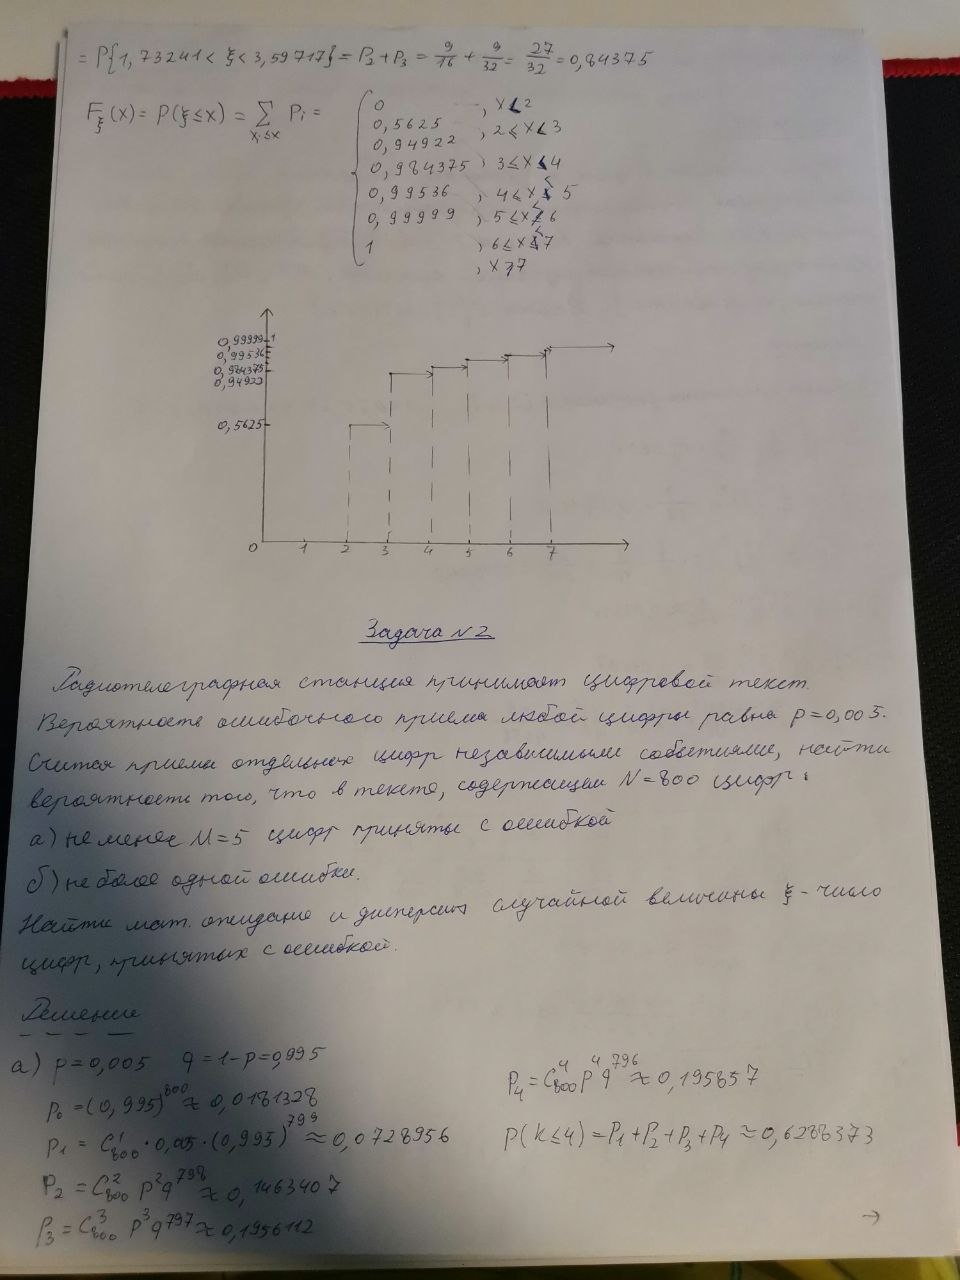 = P{1,73241 < ξ < 3,59717} = P₂ + P₃ = 9/16 + 9/32 = 27/32 = 0,84375
F_ξ(x) = P(ξ ≤ x) = Σ_{xᵢ≤x} Pᵢ =
0 , x < 2
0,5625 , 2 ≤ x < 3
0,94922
0,984375 , 3 ≤ x < 4
0,99536 , 4 ≤ x < 5
0,99999 , 5 ≤ x < 6
1 , 6 ≤ x < 7
, x ≥ 7
0,99999 1
0,99536
0,984375
0,94922
0,5625
0 1 2 3 4 5 6 7
Задача N2
Радиотелеграфная станция принимает цифровой текст.
Вероятность ошибочного приема любой цифры равна p=0,005.
Считая приемы отдельных цифр независимыми событиями, найти
вероятность того, что в тексте, содержащем N=800 цифр:
а) не менее M=5 цифр приняты с ошибкой
б) не более одной ошибки.
Найти мат. ожидание и дисперсию случайной величины ξ - число
цифр, принятых с ошибкой.
Решение
а) p=0,005 q=1-p=0,995
P₀ = (0,995)⁸⁰⁰ ≈ 0,0181328
P₁ = C¹₈₀₀ · 0,005 · (0,995)⁷⁹⁹ ≈ 0,0728956
P₂ = C²₈₀₀ p²q⁷⁹⁸ ≈ 0,1463407
P₃ = C³₈₀₀ p³q⁷⁹⁷ ≈ 0,1956112
P₄ = C⁴₈₀₀ p⁴q⁷⁹⁶ ≈ 0,195857
P(k≤4) = P₁+P₂+P₃+P₄ ≈ 0,6288373
→